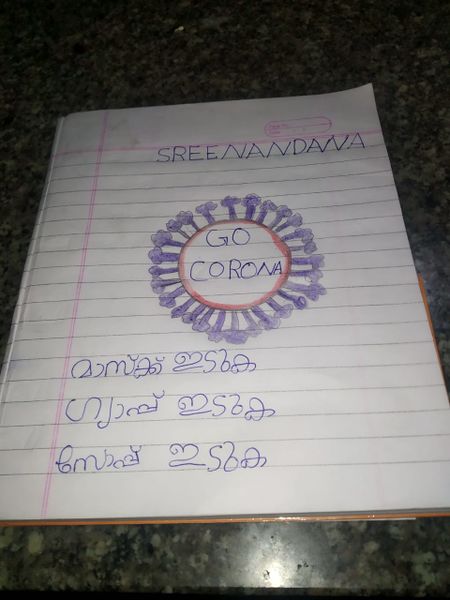 SREENANDANA
GO
CORONA
മാസ്ക്ക് ഇടുക
ഗ്യാപ്പ് ഇടുക
സോപ്പ് ഇടുക